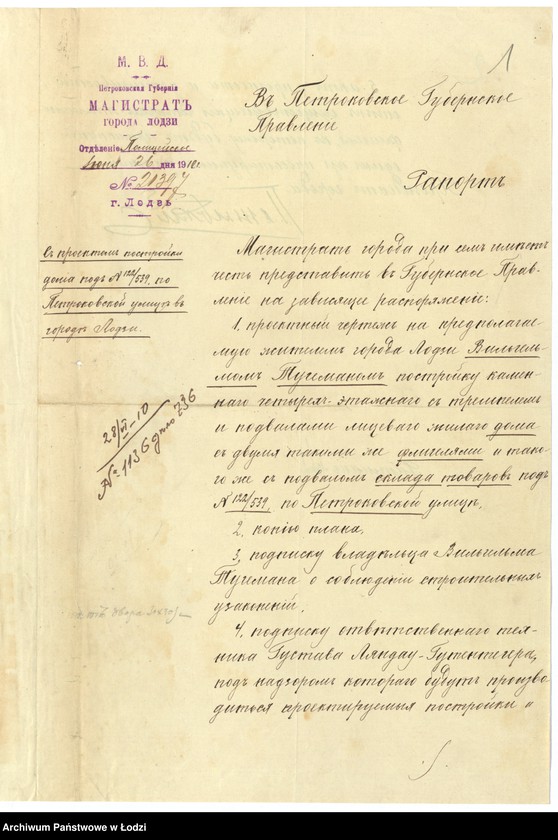 1
М. В. Д.
Петроковская Губернія
МАГИСТРАТЪ
ГОРОДА ЛОДЗИ
Отдѣленіе Полицейское
Іюня 26 дня 1910 г.
№ 21397
г. Лодзь
Въ Петроковское Губернское
Правленіе
Рапортъ
Съ проектомъ постройки
дома подъ № 122/539, по
Петроковской улицѣ въ
городѣ Лодзи.
28/VI-10
№ 1136 дѣло 736
Магистратъ города при семъ имѣетъ
честь представить въ Губернское Прав-
леніе на зависящее распоряженіе:
1, проектный чертежъ на предполагае-
мую жителемъ города Лодзи Вильгель-
момъ Тугеманомъ постройку камен-
наго четырех-этажнаго съ
и подвалами лицеваго жилаго дома
съ двумя такими же флигелями и тако-
го же съ подваломъ склада товаровъ подъ
№ 122/539, по Петроковской улицѣ,
2, копію плана,
3, подписку владѣльца Вильгельма
Тугемана о соблюденіи строительныхъ
узаконеній,
4, подписку отвѣтственнаго тех-
ника Густава Ляндау-Гутентегера,
подъ надзоромъ котораго будутъ произво-
диться проектируемыя постройки и
Archiwum Państwowe w Łodzi